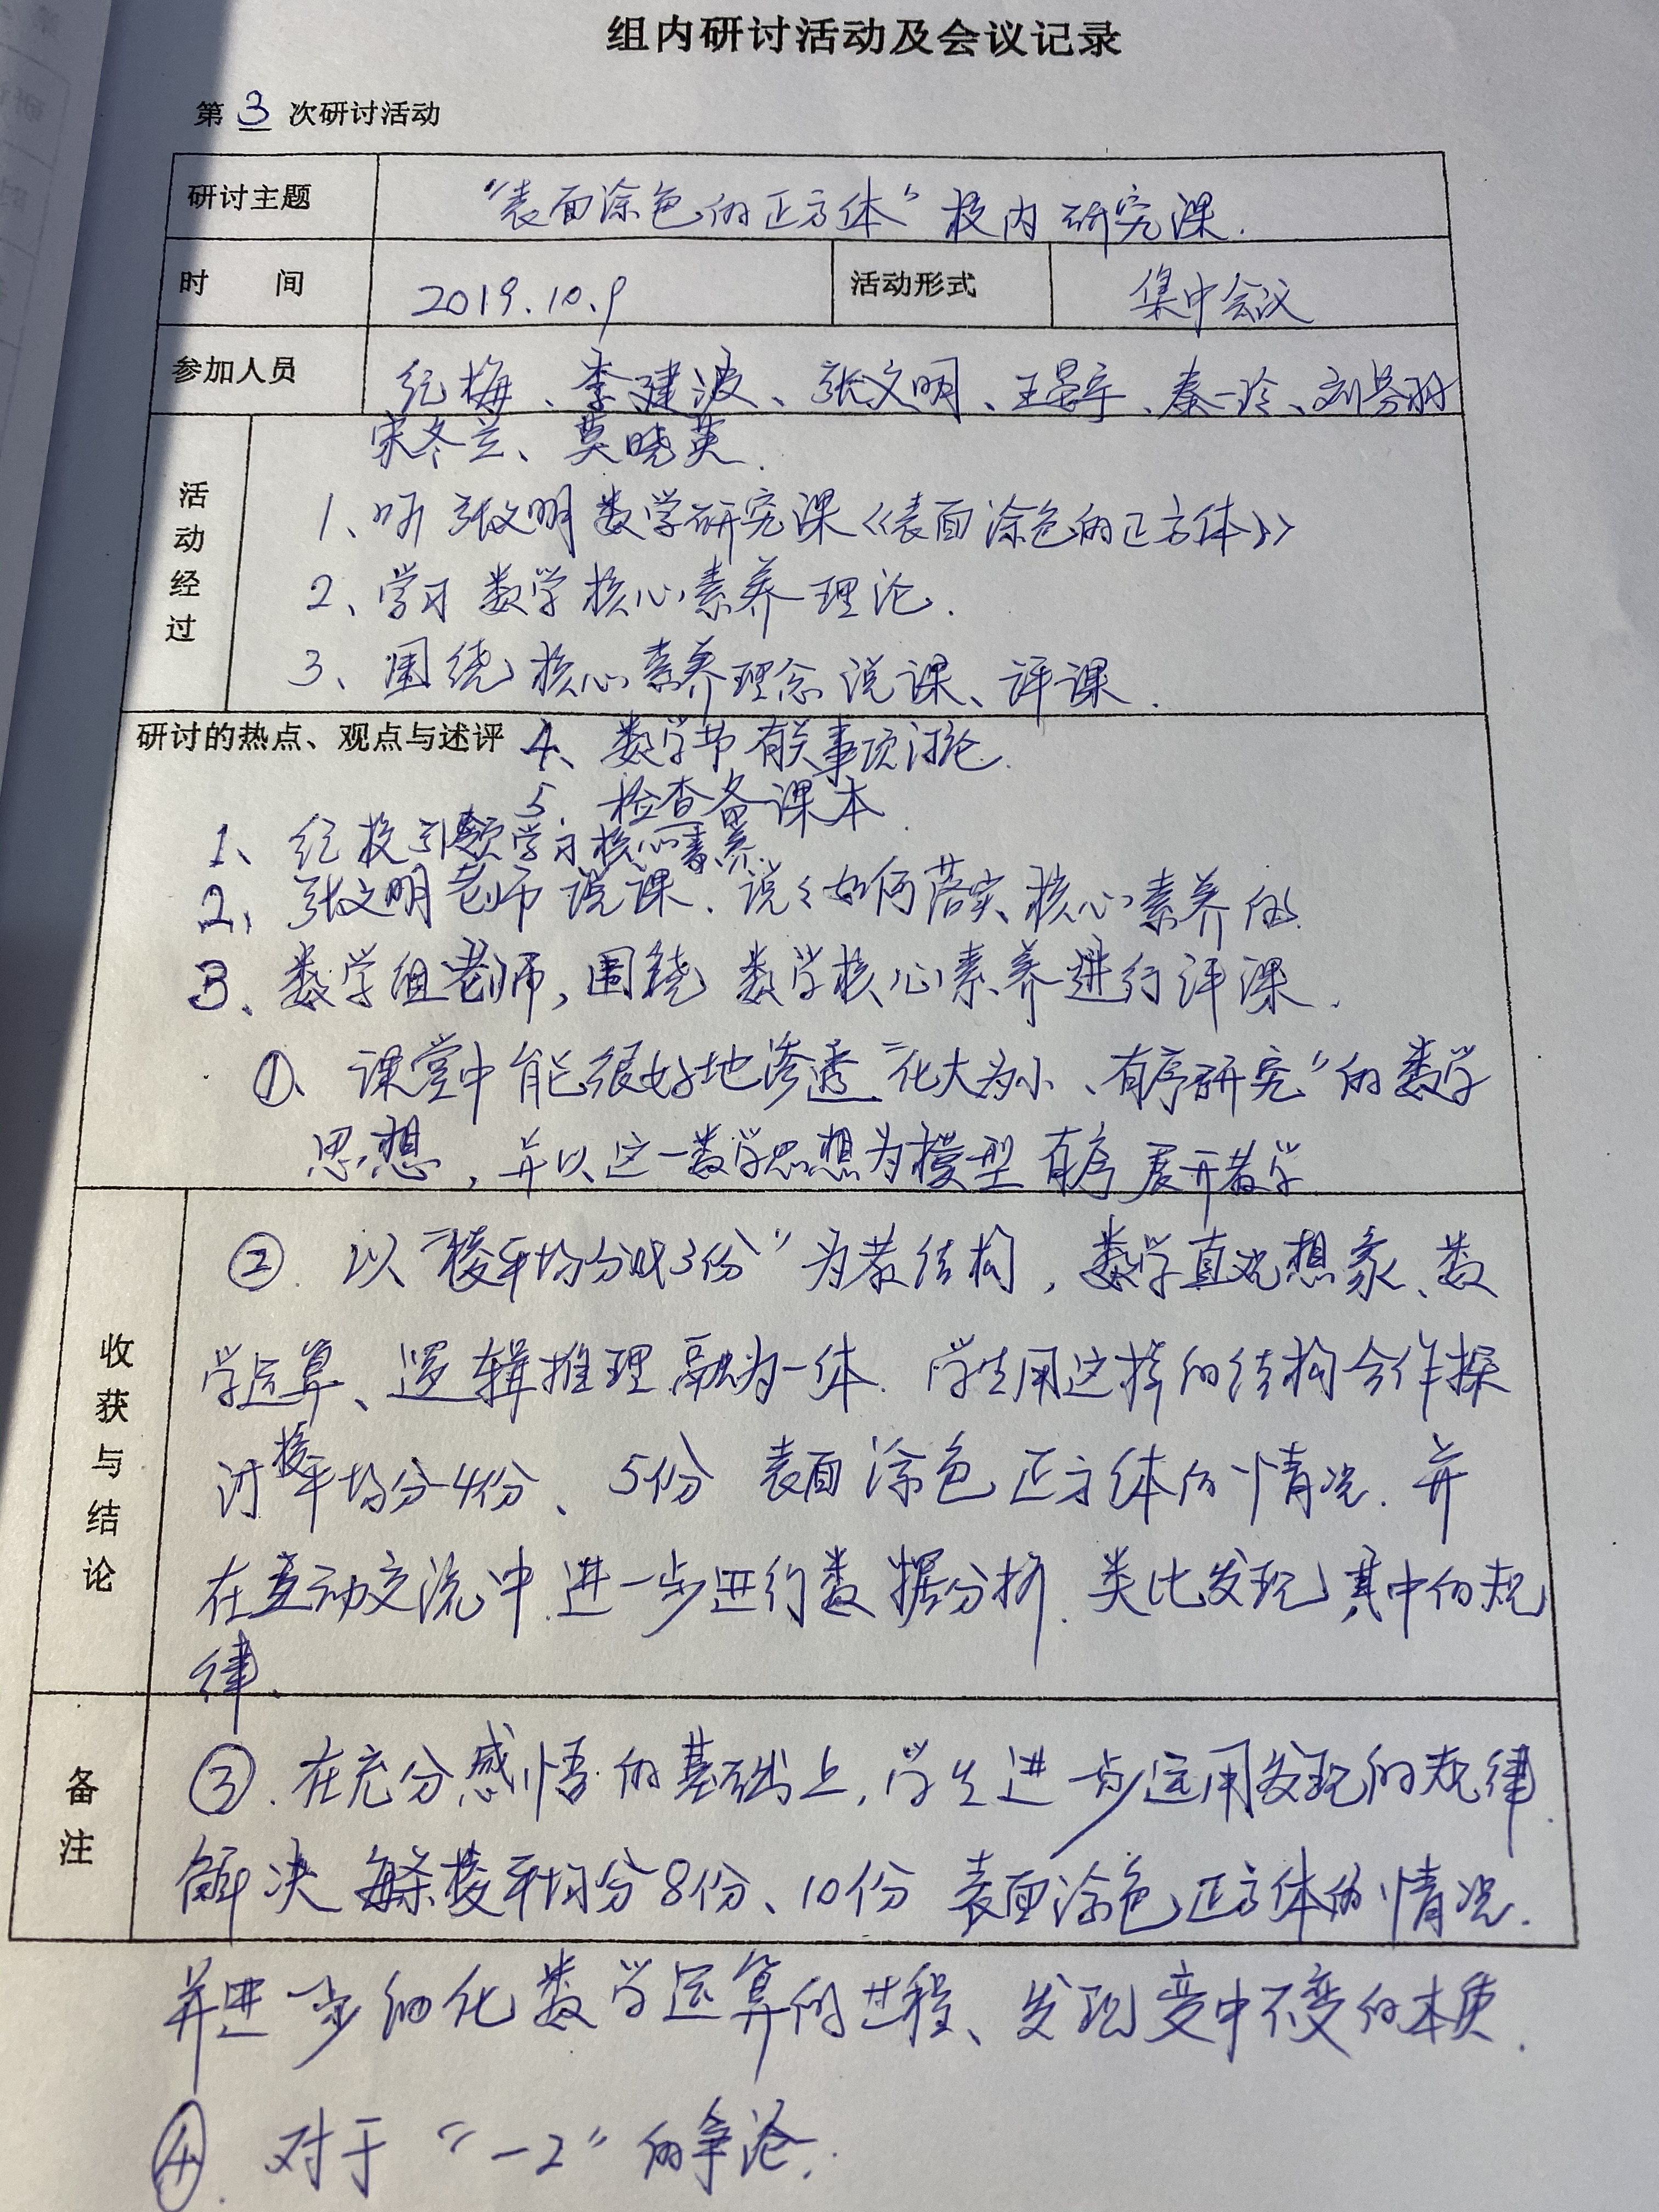 组内研讨活动及会议记录
第 3 次研讨活动
研讨主题 “表面涂色的正方体”校内研究课.
时 间 2019.10.9 活动形式 集中会议
参加人员 纪梅、李建波、张文明、王晏宇、秦一玲、刘芳羽
宋冬兰、莫晓英.
活动经过
1、听张文明数学研究课《表面涂色的正方体》
2、学习数学核心素养理论.
3、围绕核心素养理念说课、评课.
研讨的热点、观点与述评 4、数学节有关事项讨论.
5. 检查备课本.
1、纪校引领学习核心素养.
2、张文明老师说课.说说如何落实核心素养的.
3、数学组老师,围绕数学核心素养进行评课.
①、课堂中能很好地渗透“化大为小、有序研究”的数学
思想,并以这一数学思想为模型有序展开教学.
收获与结论
②. 以“棱平均分成3份”为教结构,数学直观想象、数
学运算、逻辑推理融为一体.学生用这样的结构合作探
讨棱平均分4份、5份表面涂色正方体的情况.并
在互动交流中.进一步进行数据分析.类比发现其中的规
律.
备注
③.在充分感悟的基础上,学生进一步运用发现的规律.
解决每条棱平均分8份、10份表面涂色正方体的情况.
并进一步细化数学运算的过程、发现变中不变的本质.
④.对于“-2”的争论.